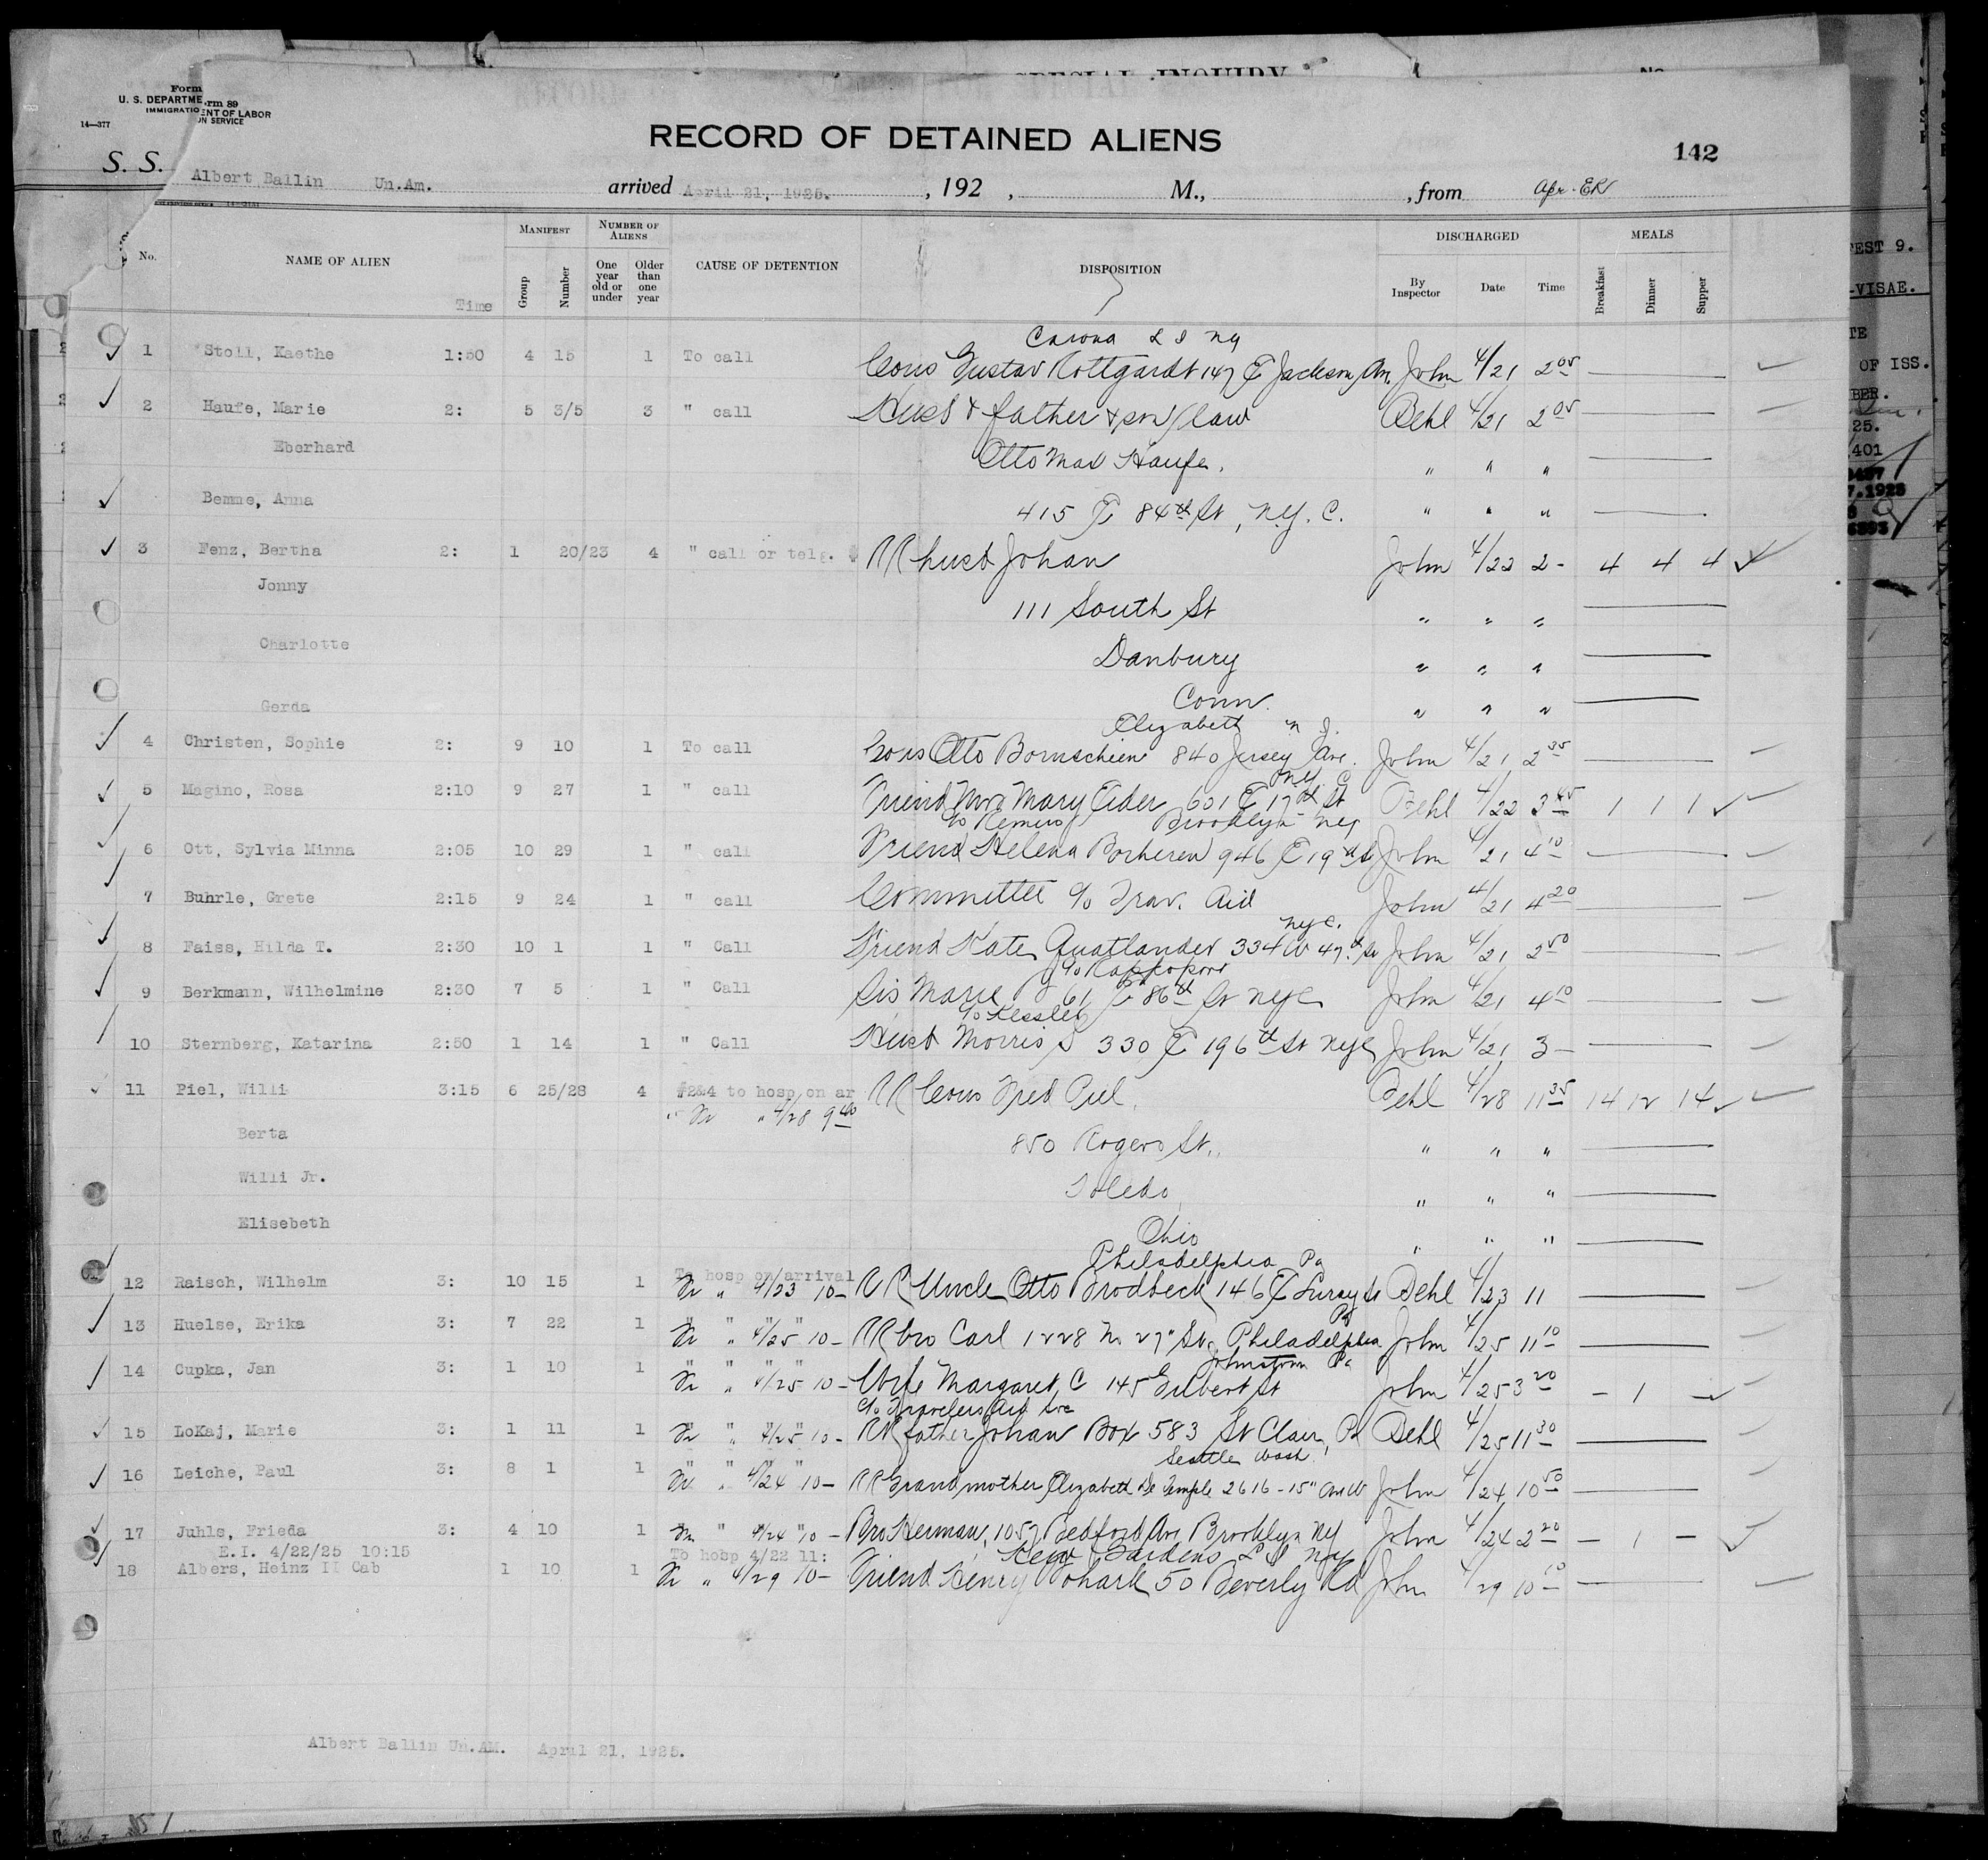 SPECIAL INQUIRY
No.
Form
U. S. DEPARTME
IMMIGRATIO
rm 89
ENT OF LABOR
ON SERVICE
14—377
RECORD OF DETAINED ALIENS
142
S. S. Albert Ballin Un.Am. arrived April 21, 1925. , 192 , M., , from Apr. ER
No. NAME OF ALIEN Time MANIFEST Group Number NUMBER OF ALIENS One year old or under Older than one year CAUSE OF DETENTION DISPOSITION DISCHARGED By Inspector Date Time MEALS Breakfast Dinner Supper
Corona L I NY
1 Stoll, Kaethe 1:50 4 15 1 To call Cous Gustav Rottgardt 147 E Jackson Av. John 4/21 2 05
2 Haufe, Marie 2: 5 3/5 3 " call Husb & father & son/law Behl 4/21 2 05
Eberhard Otto Max Haufe. " " "
Bemme, Anna 415 E 84th St, N.Y. C. " " "
3 Fenz, Bertha 2: 1 20/23 4 " call or telg. RR husb Johan John 4/22 2- 4 4 4
Jonny 111 South St " " "
Charlotte Danbury " " "
Gerda Conn. " " "
Elizabeth N J.
4 Christen, Sophie 2: 9 10 1 To call Cous Otto Bornschein 840 Jersey Ave. John 4/21 2 35
NY C
5 Magino, Rosa 2:10 9 27 1 " call Friend Mrs Mary Eider 601 E 17th St Behl 4/22 3 45 1 1 1
Brooklyn NY
6 Ott, Sylvia Minna 2:05 10 29 1 " call Friend Helena 946 E 19th St John 4/21 4 10
7 Buhrle, Grete 2:15 9 24 1 " call Committee c/o Trav. Aid John 4/21 4 20
NYC.
8 Faiss, Hilda T. 2:30 10 1 1 " Call Friend Kate Quatlander 334 W 47th St John 4/21 2 50
c/o Rappoport
9 Berkmann, Wilhelmine 2:30 7 5 1 " Call Sis Marie B 61 E 86th St NYC John 4/21 4 10
c/o Kessler
10 Sternberg, Katarina 2:50 1 14 1 " Call Husb Morris S 330 E 196th St NYC John 4/21 3-
11 Piel, Willi 3:15 6 25/28 4 #2&4 to hosp on ar RR Cous Fred Piel Behl 4/28 11 35 14 12 14
" Fr " 4/28 9 40
Berta 850 Rogers St. " " "
Willi Jr. Toledo " " "
Elisebeth Ohio " " "
Philadelphia Pa
12 Raisch, Wilhelm 3: 10 15 1 To hosp on arrival Fr " 4/23 10- RR Uncle Otto Brodbeck 146 E Luray St Behl 4/23 11
Pa
13 Huelse, Erika 3: 7 22 1 " " " " Fr " 4/25 10- RR bro Carl 1228 No 27" St. Philadelphia John 4/25 11 10
Johnstown Pa
14 Cupka, Jan 3: 1 10 1 " " " " Fr " 4/25 10- Wife Margaret C 145 Gilbert St John 4/25 3 20 - 1 -
c/o Travelers Aid Soc
15 LoKaj, Marie 3: 1 11 1 " " " " Fr " 4/25 10- RR father Johan Box 583 St Clair, Pa Behl 4/25 11 30
Seattle Wash
16 Leiche, Paul 3: 8 1 1 " " " " Fr " 4/24 10- RR Grandmother Elizabeth De Temple 2616-15" Av W John 4/24 10 50
17 Juhls, Frieda 3: 4 10 1 Fr " 4/24 10- Bro Herman, 1057 Bedford Av. Brooklyn NY John 4/24 2 20 - 1 -
E.I. 4/22/25 10:15 To hosp 4/22 11: Kew Gardens L I NY
18 Albers, Heinz II Cab 1 10 1 Fr " 4/29 10- Friend Henry 50 Beverly Rd John 4/29 10 10
Albert Ballin Un.AM. April 21, 1925.
EST 9.
-VISAE.
TE
OF ISS.
BER.
25.
401
7.1925